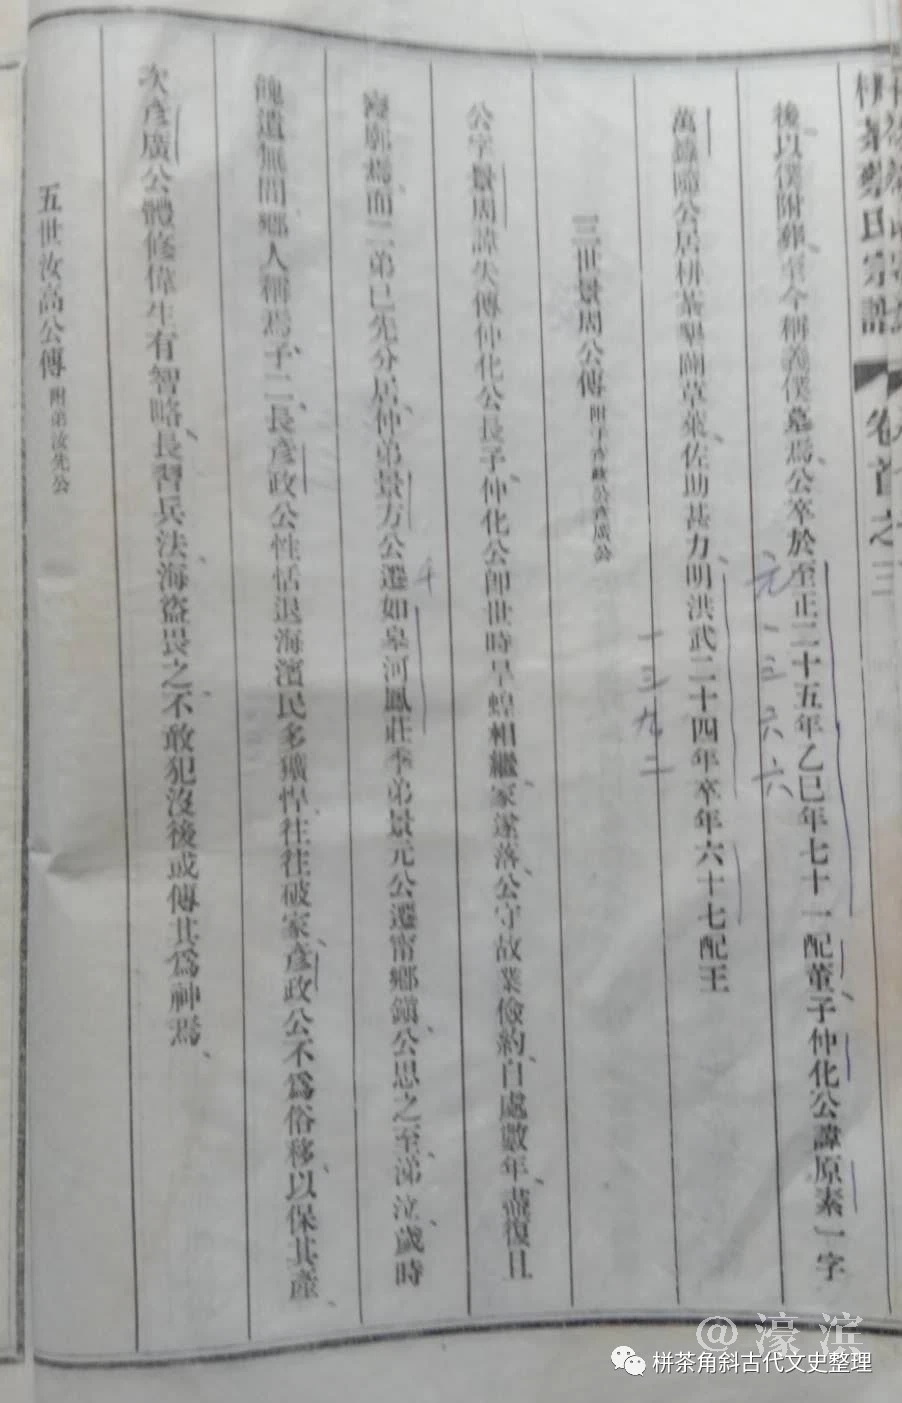 栟茶蔡氏宗譜 卷首之三
後以僕附葬至今稱義僕墓焉公卒於至正二十五年乙巳年七十一配董子仲化公諱原素一字
元一三六六
萬鎰隨公居栟茶墾闢草萊佐助甚力明洪武二十四年卒年六十七配王
一三九二
三世景周公傳 附子彥政公彥廣公
公字景周諱失傳仲化公長子仲化公卽世時旱蝗相繼家遂落公守故業儉約自處數年盡復且
寖廓焉而二弟已先分居仲弟景方公遷如皋河鳳莊季弟景元公遷甯鄉鎭公思之至涕泣歲時
餽遺無間鄉人稱焉子二長彥政公性恬退海濱民多獷悍往往破家彥政公不爲俗移以保其產
次彥廣公體修偉生有智略長習兵法海盜畏之不敢犯沒後或傳其爲神焉
五世汝高公傳 附弟汝先公
@濠滨
栟茶角斜古代文史整理